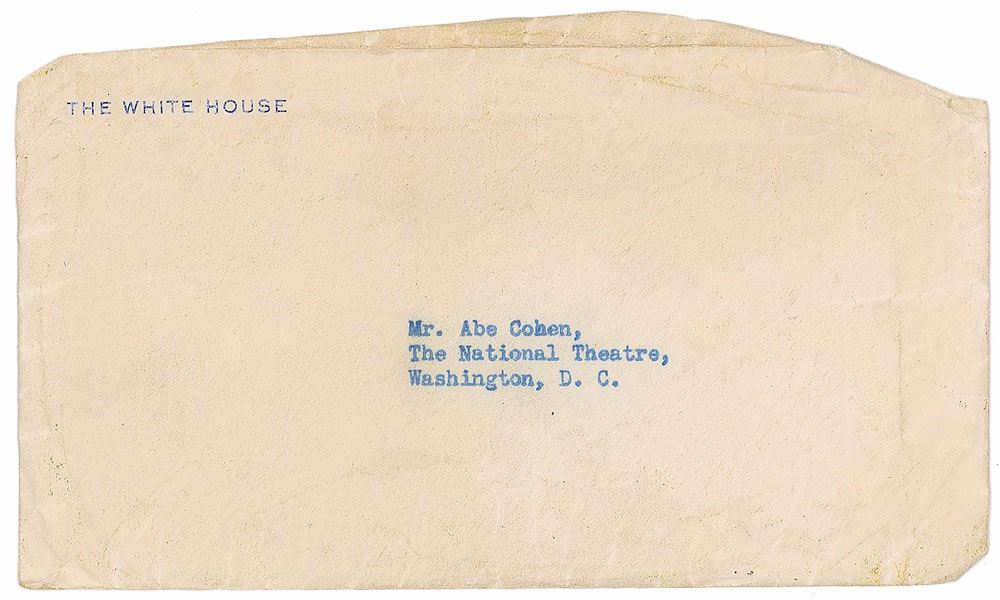 THE WHITE HOUSE
Mr. Abe Cohen,
The National Theatre,
Washington, D. C.